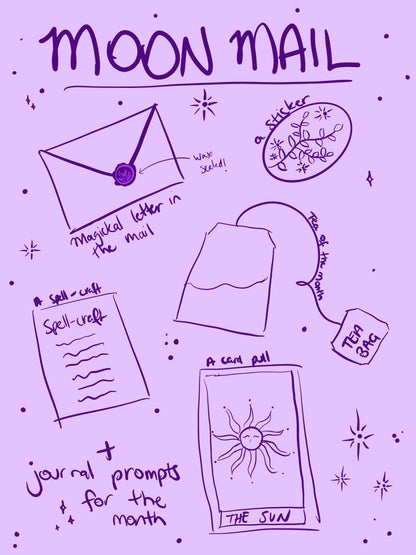 MOON MAIL
a sticker
wax
sealed!
Magickal letter in
the mail
Tea of the month
TEA
BAG
A spell-craft
Spell-craft
A card pull
THE SUN
+
journal prompts
for the
month